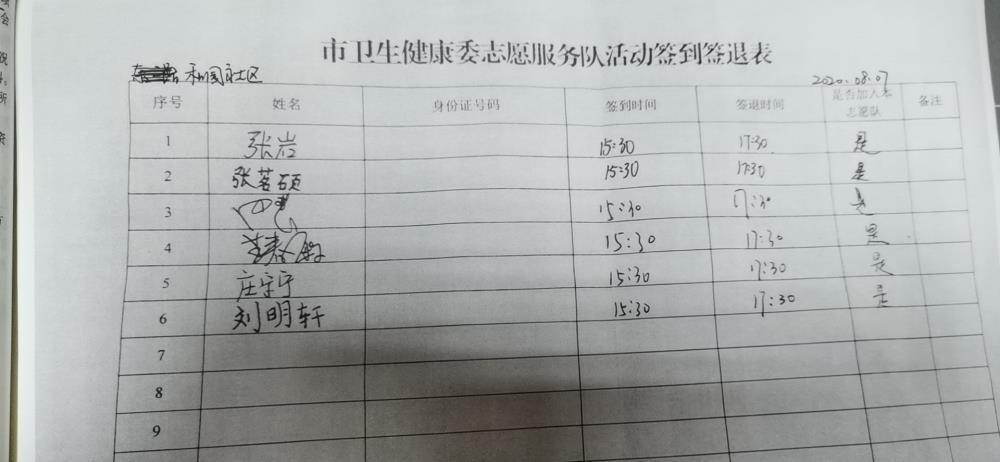 市卫生健康委志愿服务队活动签到签退表
和园社区
2020.08.07
序号 姓名 身份证号码 签到时间 签退时间 是否加入本志愿队 备注
1 张岩 15:30 17:30 是
2 张茗硕 15:30 17:30 是
3 15:30 17:30 是
4 15:30 17:30 是
5 庄宇宁 15:30 17:30 是
6 刘明轩 15:30 17:30 是
7
8
9